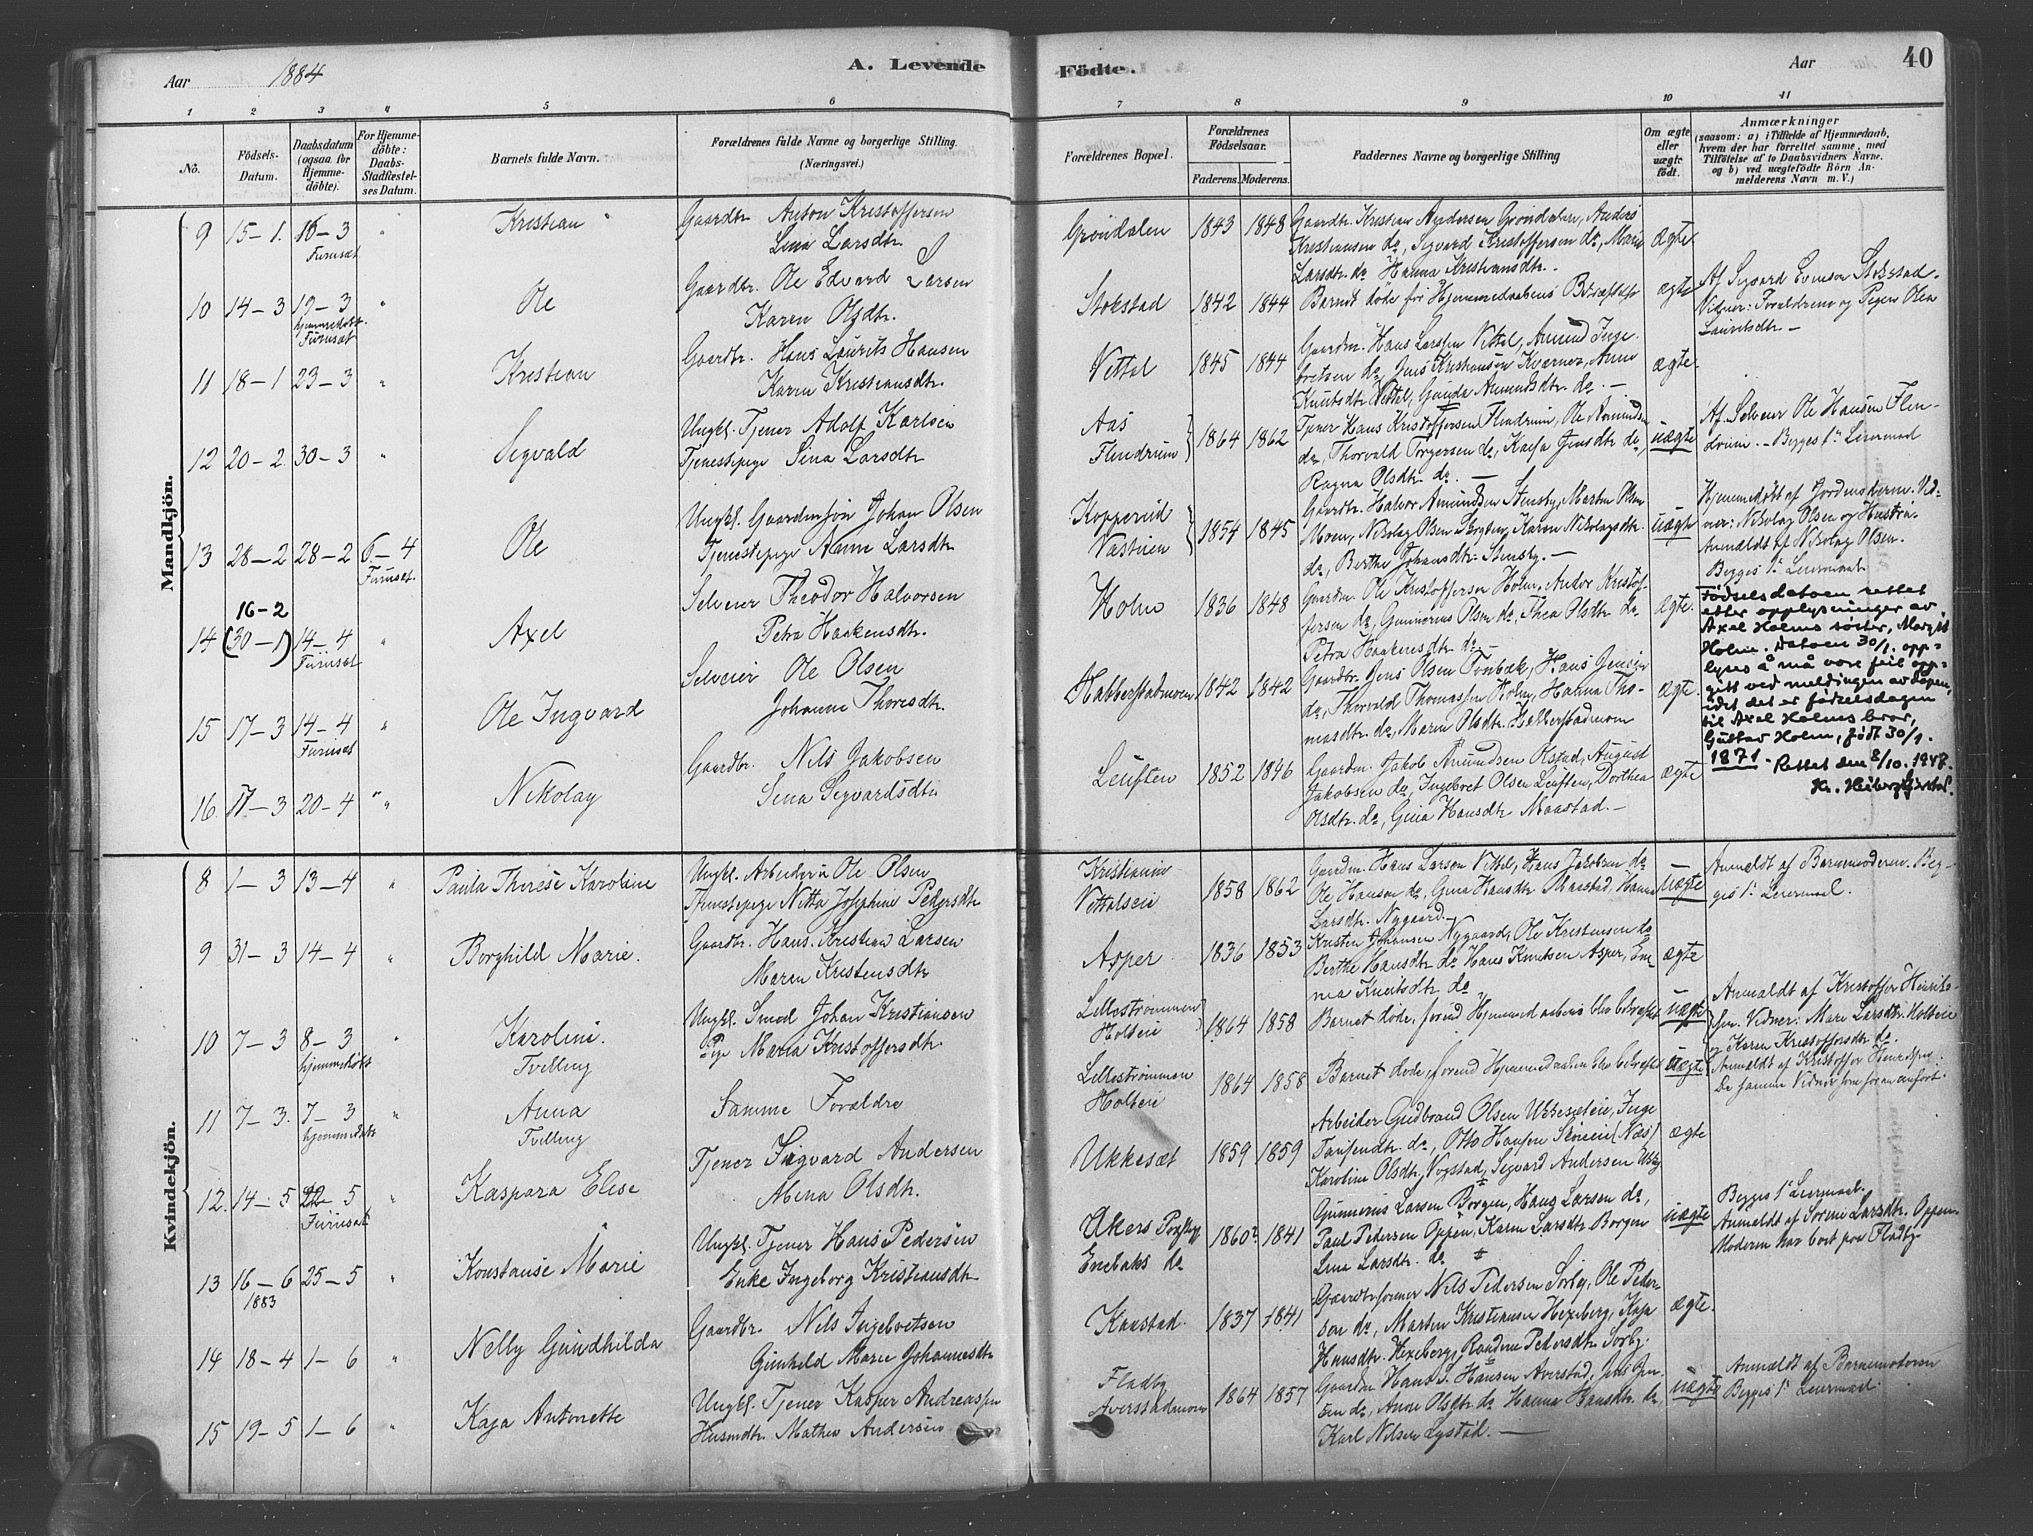 Aar 1884
A. Levende Födte.
Aar
40
1 2 3 4 5 6 7 8 9 10 11
No.
Födsels-
Datum.
Daabsdatum
(ogsaa for
Hjemme-
döbte).
For Hjemme-
döbte:
Daabs-
Stadfæstel-
ses Datum.
Barnets fulde Navn.
Forældrenes fulde Navne og borgerlige Stilling.
(Næringsvei.)
Forældrenes Bopæl.
Forældrenes
Födselsaar.
Faderens. Moderens.
Faddernes Navne og borgerlige Stilling
Om ægte
eller
uægte
födt.
Anmærkninger
(saasom: a) i Tilfælde af Hjemmedaab,
hvem der har forrettet samme, med
Tilföielse af to Daabsvidners Navne.
og b) ved uægtefödte Börn An-
melderens Navn m. V.)
Mandkjön.
9 15-1. 16-3 " Kristian
Furuset
Gaardbr. Anton Kristoffersen
Lina Larsdtr.
Gröndalen 1843 1848
Gaardbr. Kristian Andersen Gröndalen, Anders
Kristiansen do, Sigvard Kristoffersen do, Marie
Larsdtr. do Hanna Kristiansdtr.
ægte.
10 14-3 19-3 " Ole
hjemmedöbt.
Furuset
Gaardbr. Ole Edvard Larsen
Karen Olsdtr.
Stokstad 1842 1844
Barnet döde för Hjemmedaabens Bekræftelse
ægte
Af Sigvard Evenson Stokstad.
Vidner: Forældrene og Pigen Olea
Lauritsdtr -
11 18-1 23-3 " Kristian
Gaardbr. Hans Laurits Hansen
Karen Kristiansdtr.
Vittal 1845 1844
Gaardm. Hans Larsen Vittal, Amund Inge-
bretsen do, Jens Kristiansen Kverner, Anne
Knutsdtr. Vittal, Gunda Amundsdtr. do. -
ægte.
12 20-2 30-3 " Segvald
Ungkl. Tjener Adolf Karlsen
Tjenestepige Sina Larsdtr
Aas
Flendrum
1864 1862
Tjener Hans Kristoffersen Flendrum, Ole Amunds
do, Thorvald Torgersen do, Kaisa Jensdtr do,
Ragna Olsdtr. do. -
uægte
Af Selveier Ole Hansen Flen-
drum. - Begges 1ste Leiermaal
13 28-2 28-2 6-4 Ole
Furuset.
Ungkl. Gaardmsön Johan Olsen
Tjenestepige Anne Larsdtr
Kopperud
1854 1845
Gaardbr. Halvor Amundsen Stensby, Martin Olsen
Moen, Nikolay Olsen, Karen Nikolaysdtr
do, Berthe Johansdtr. Stensby. -
uægte
Hjemmedöbt af Jordemoderen. Vid-
ner: Nikolay Olsen og Hustru.
Anmeldt af Nikolay Olsen.
Begges 1ste Leiermaal.
16-2
14 (30-1) 14-4 " Axel
Furuset
Selveier Theodor Halvorsen
Petra Haakensdtr.
Holm 1836 1848
Gaardm. Ole Kristoffersen Holm, Andor Kristof-
fersen do, Gunnerius Olsen do, Thea Olsdtr do
Petra Haakensdtr do
ægte.
Födselsdatoen rettet
etter opplysninger av
Axel Holms söster, Margit
Holm. Datoen 30/1. opp-
lyses å må være feil opp-
gitt ved meldingen av dåpen,
idet det er födselsdagen
til Axel Holms bror,
Gustav Holm, födt 30/1.
1871. Rettet den 8/10.1948.
15 17-3 14-4 " Ole Ingvard
Furuset
Selveier Ole Olsen
Johanne Thoresdtr.
Habberstadmoen 1842 1842
Gaardbr. Jens Olsen Tonbæk, Hans Jensen
do, Thorvald Thomassen Holm, Hanna Tho-
masdtr. do, Maren Olsdtr. Habberstadmoen
ægte.
16 17-3 20-4 " " Nikolay
Gaardbr. Nils Jakobsen
Sina Segvardsdtr
Leuften 1852 1846
Gaardm. Jakob Amundsen Olstad, August
Jakobsen do, Ingebret Olsen Leuften, Dorthea
Olsdtr. do, Gina Hansdtr Maastad. -
ægte
Kvindekjön.
8 1-3 13-4 " Paula Therese Karoline
Ungkl. Arbeider Ole Olsen
Tjenestepige Netta Josephine Pedersdtr
Kristiania
Vittalseie
1858 1862
Gaardm. Hans Larsen Vittal, Hans Jakobsen do
Ole Hansen do, Gina Hansdtr Maastad, Hanna
Larsdtr. Nygaard.
uægte
Anmeldt af Barnemoderen. Beg-
ges 1ste Leiermaal.
9 31-3 14-4 " Borghild Marie.
Gaardbr. Hans Kristian Larsen
Maren Kristensdtr
Asper 1836 1853
Kristen Johansen Nygaard, Ole Kristensen do
Berthe Hansdtr do Hans Knutsen Asper, Em-
ma Knutsdtr do
ægte
10 7-3 8-3 " Karoline.
hjemmedöbt
Tvilling
Ungkl. Smed Johan Kristiansen
Pige Maria Kristoffersdtr.
Lilleströmmen
Holteie
1864 1858
Barnet döde, förend Hjemmedaaben blev bekræftet
uægte
Anmeldt af Kristoffer Henrik-
sen. Vidner: Mari Larsdtr. Holteie
og Karen Kristoffersdtr do.
11 7-3. 7-3 " Anna
hjemmedöbt
Tvilling
Samme Forældre
Lilleströmmen
Holteie
1864 1858
Barnet döde, förend Hjemmedaaben blev bekræftet
uægte
Anmeldt af Kristoffer Henriksen.
De samme Vidner som foran anfört.
12. 14-5 22-5 " Kaspara Elise
Furuset
Tjener Sigvard Andersen
Mina Olsdtr.
Ukkesæt 1859 1859
Arbeider Gudbrand Olsen Ukkesæteie, Inge
do, Otto Hansen (Næs)
Karoline Olsdtr. Vogstad, Segvard Andersen
ægte
13 16-6 25-5 " Konstanse Marie
1883
Ungkl. Tjener Hans Pedersen
Enke Ingeborg Kristiansdtr
Akers
Enebaks do
1860? 1841
Gunnerius Larsen Borgen, Hans Larsen do,
Paul Pedersen Oppen, Karen Larsdtr Borgen
Lina Larsdtr. do
uægte
Begges 1ste Leiermaal.
Anmeldt af Larsdtr. Oppen
Moderen har bort paa Fladby
14 18-4 1-6 " Nelly Gundhilda
Gaardbr. Nils Ingebretsen
Gunhild Marie Johannesdtr
Kanstad. 1837 1841
Gaardbrformer Nils Pedersen Sörby, Ole Peder-
sen do, Martin Kristiansen Hexeberg, Kaja
Hansdtr. Hexeberg, Randine Pedersdtr Sörby.
ægte.
15 19-5 1-6 " Kaja Antonette
Ungkl. Tjener Kasper Andreassen
Husmdtr. Mathea Andersen
Fladby
Averstadmoen
1864 1857
Gaardm Hans S. Hansen Averstad, Jens Jen-
sen do, Anne Olsdtr do Hanna Hansdtr. do,
Karl Nilsen Lystad. -
uægte
Anmældt af Barnemoderen
Begges 1ste Leiermaal.